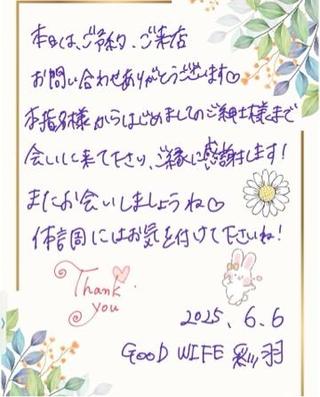 本日は、ご予約、ご来店
お問い合わせありがとうございます♡
本指名様からはじめましてのご紳士様まで
会いに来て下さり、ご縁に感謝します！
またお会いしましょうね♡
体調にはお気を付けて下さいね！
Thank you
2025.6.6
GOOD WIFE 彩羽